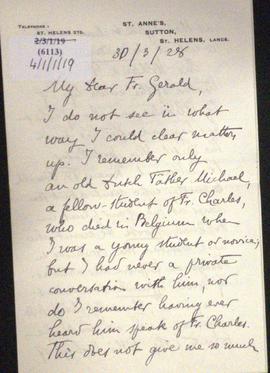 TELEPHONE:
ST. HELENS 270.
2/3/1/19
(6113)
4/1/1/19
ST. ANNE'S,
SUTTON,
ST. HELENS, LANCS.
30/3/28
My Dear Fr. Gerald,
I do not see in what
way I could clear matters
up. I remember only
an old Dutch Father Michael,
a fellow-student of Fr. Charles,
who died in Belgium when
I was a young student or novice;
but I had never a private
conversation with him, nor
do I remember having ever
heard him speak of Fr. Charles.
This does not give me so much